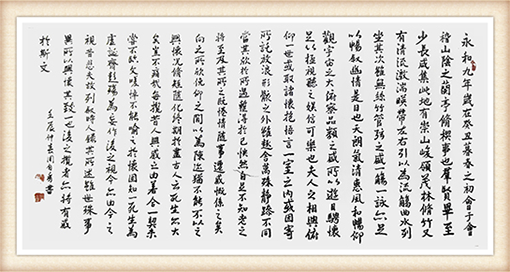 永和九年歲在癸丑暮春之初會于會
稽山陰之蘭亭脩稧事也羣賢畢至
少長咸集此地有崇山峻領茂林脩竹又
有清流激湍暎帶左右引以為流觴曲水列
坐其次雖無絲竹管弦之盛一觴一詠亦足
以暢叙幽情是日也天朗氣清惠風和暢仰
觀宇宙之大俯察品類之盛所以遊目騁懷
足以極視聽之娛信可樂也夫人之相與俯
仰一世或取諸懷抱悟言一室之內或因寄
所託放浪形骸之外雖趣舍萬殊靜躁不同
當其欣於所遇蹔得於己怏然自足不知老之
將至及其所之既惓情隨事遷感慨係之矣
向之所欣俛仰之閒以為陳迹猶不能不以之
興懷況脩短隨化終期於盡古人云死生亦大
矣豈不痛哉每攬昔人興感之由若合一契未
嘗不臨文嗟悼不能喻之於懷固知一死生為
虛誕齊彭殤為妄作後之視今亦由今之
視昔悲夫故列叙時人錄其所述雖世殊事
異所以興懷其致一也後之攬者亦將有感
於斯文